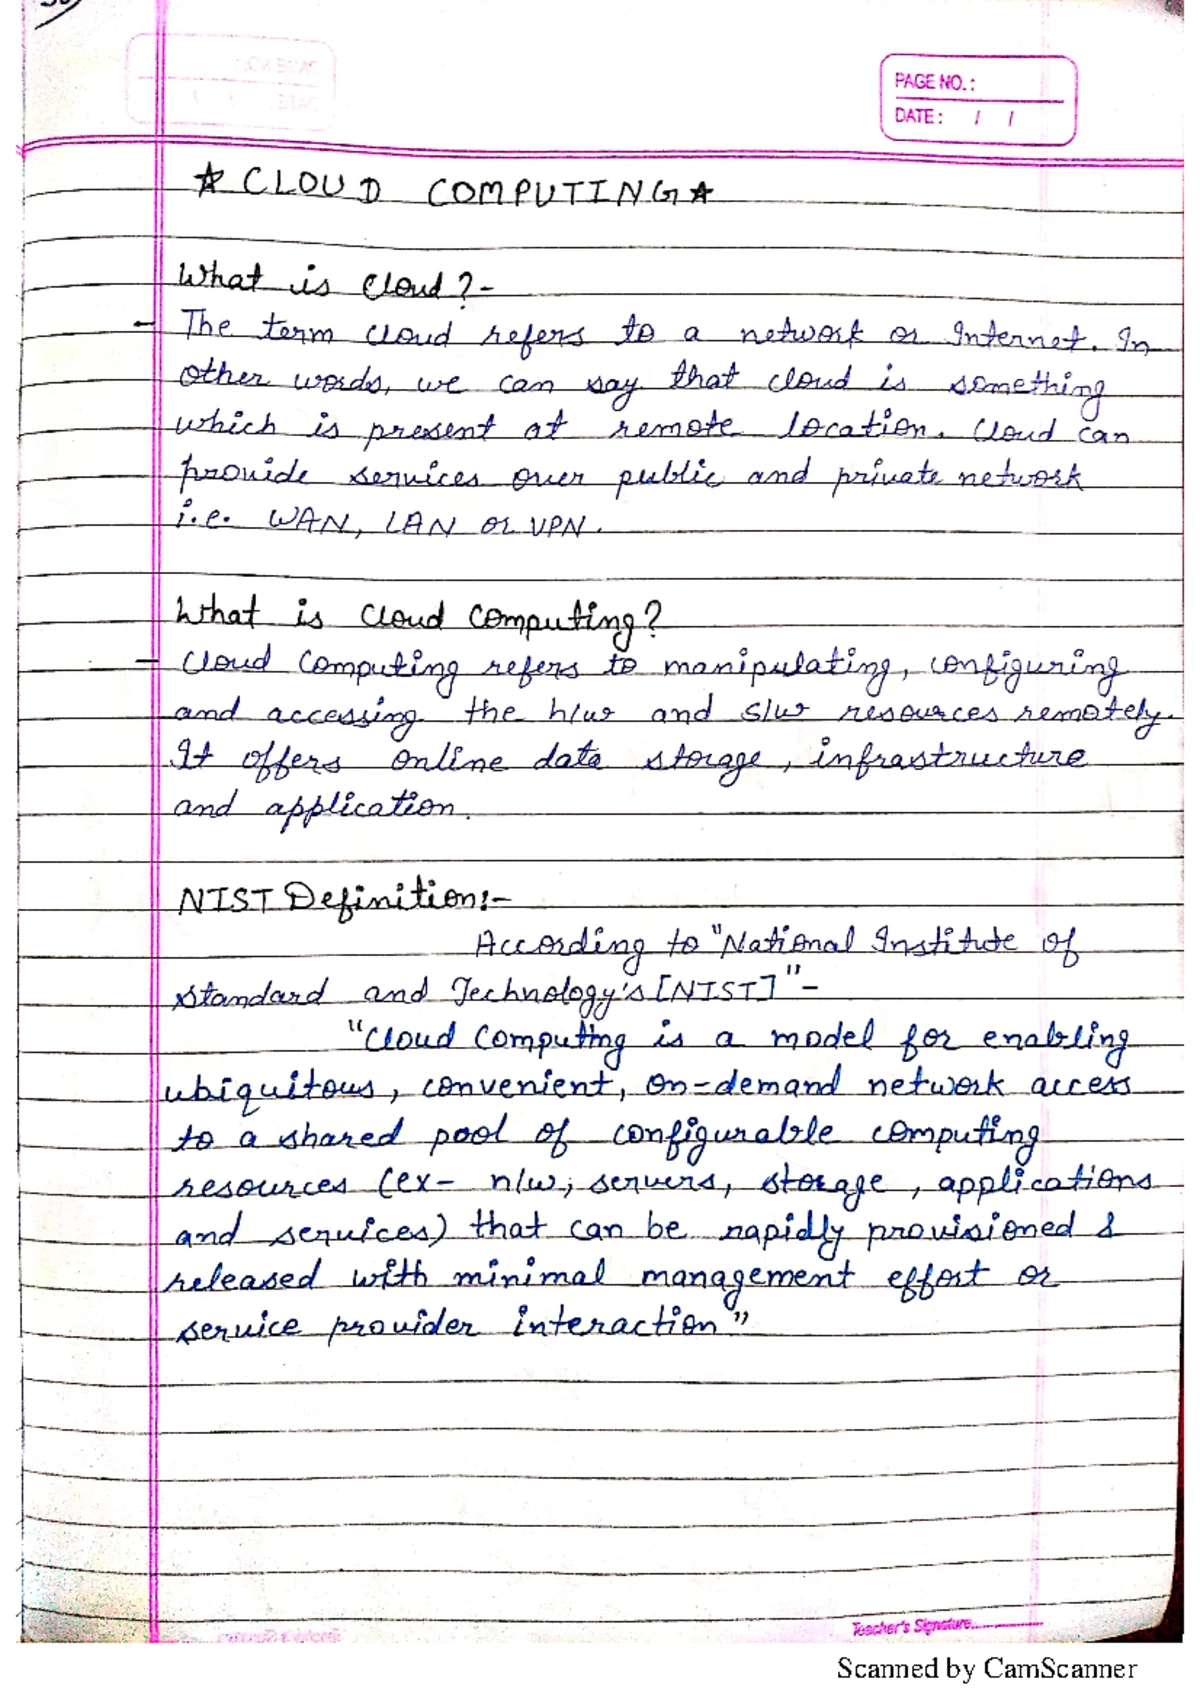 PAGE NO.:
DATE: / /
☆ CLOUD COMPUTING ☆
What is Cloud?-
- The term cloud refers to a network or Internet. In
other words, we can say that cloud is something
which is present at remote location. Cloud can
provide services over public and private network
i.e. WAN, LAN or VPN.
What is Cloud Computing?
- Cloud Computing refers to manipulating, configuring
and accessing the h/w and s/w resources remotely.
It offers online data storage, infrastructure
and application.
NIST Definition:-
According to "National Institute of
Standard and Technology's [NIST]"-
"Cloud Computing is a model for enabling
ubiquitous, convenient, on-demand network access
to a shared pool of configurable computing
resources (ex- n/w, servers, storage, applications
and services) that can be rapidly provisioned &
released with minimal management effort or
service provider interaction"
Teacher's Signature..............
Scanned by CamScanner